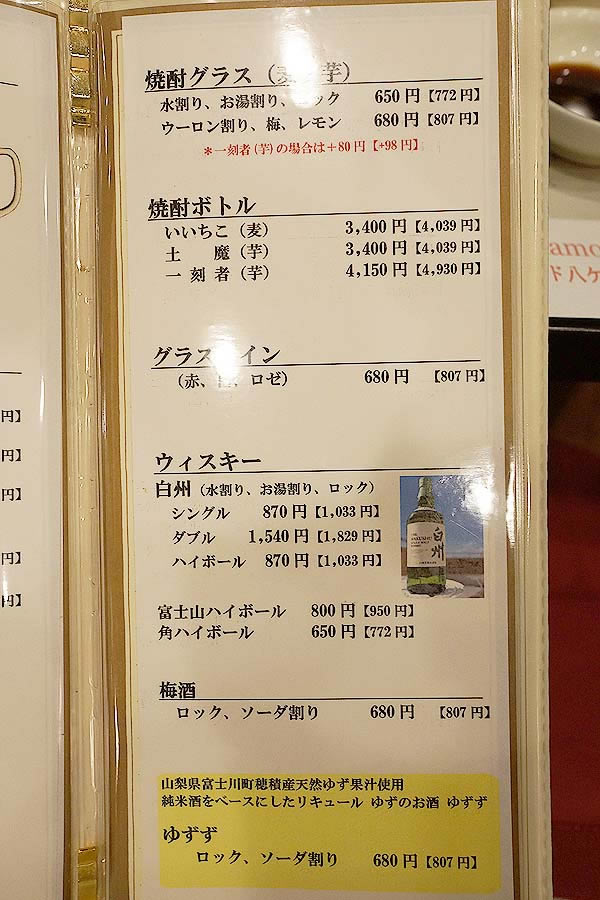 焼酎グラス（麦・芋）
水割り、お湯割り、ロック 650円【772円】
ウーロン割り、梅、レモン 680円【807円】
＊一刻者（芋）の場合は＋80円【+98円】
焼酎ボトル
いいちこ（麦） 3,400円【4,039円】
土 魔（芋） 3,400円【4,039円】
一 刻 者（芋） 4,150円【4,930円】
グラスワイン
（赤、白、ロゼ） 680円 【807円】
ウィスキー
白州（水割り、お湯割り、ロック）
シングル 870円【1,033円】
ダブル 1,540円【1,829円】
ハイボール 870円【1,033円】
白州
富士山ハイボール 800円【950円】
角ハイボール 650円【772円】
梅酒
ロック、ソーダ割り 680円 【807円】
山梨県富士川町穂積産天然ゆず果汁使用
純米酒をベースにしたリキュール ゆずのお酒 ゆずず
ゆずず
ロック、ソーダ割り 680円【807円】
円】
円】
円】
円】
円】
amo
ド八ケ